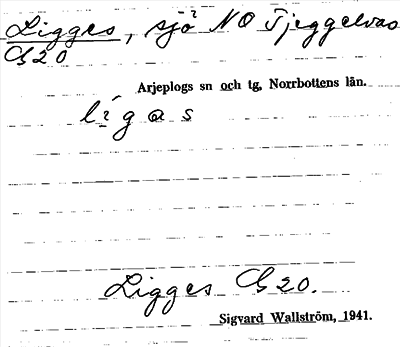 Ligges, sjö NO Tjeggelvas
G20
Arjeplogs sn och tg, Norrbottens län.
lígɑs
Ligges G20.
Sigvard Wallström, 1941.